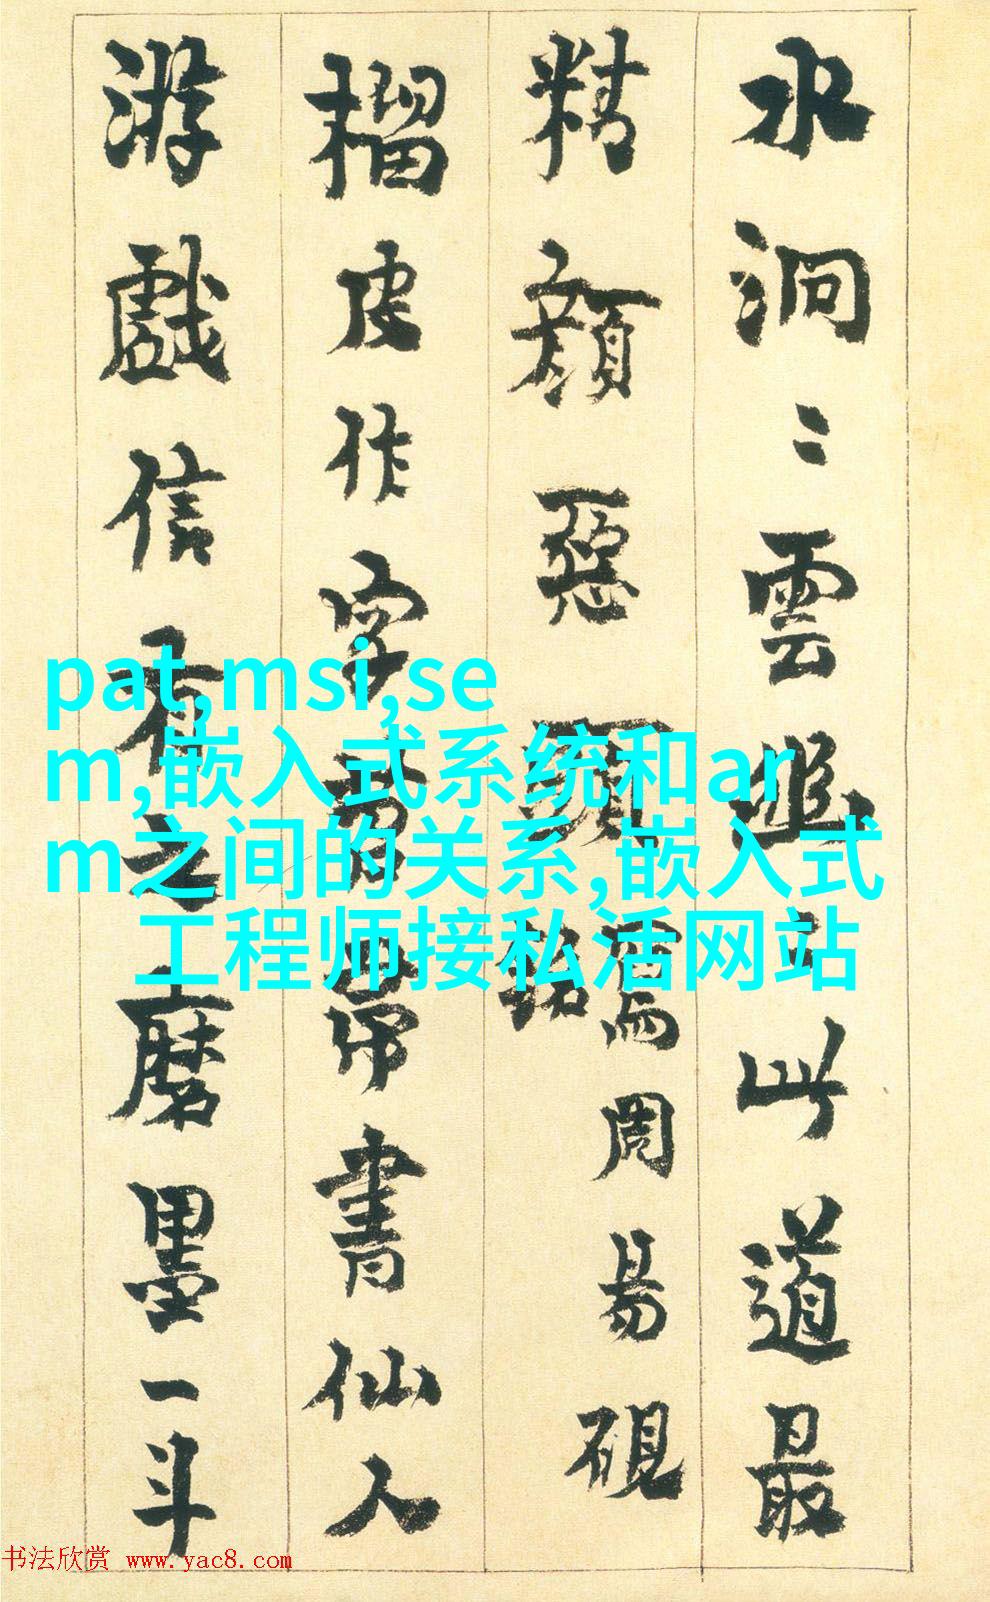 水洞〻雲〻此道最
精顏惡頭寫周易硯
銘
榴皮作字苕帚書仙人
游戲信有之磨墨一斗
pat,msi,se
m,嵌入式系统和ar
m之间的关系,嵌入式
工程师接私活网站
书法欣赏 www.yac8.com